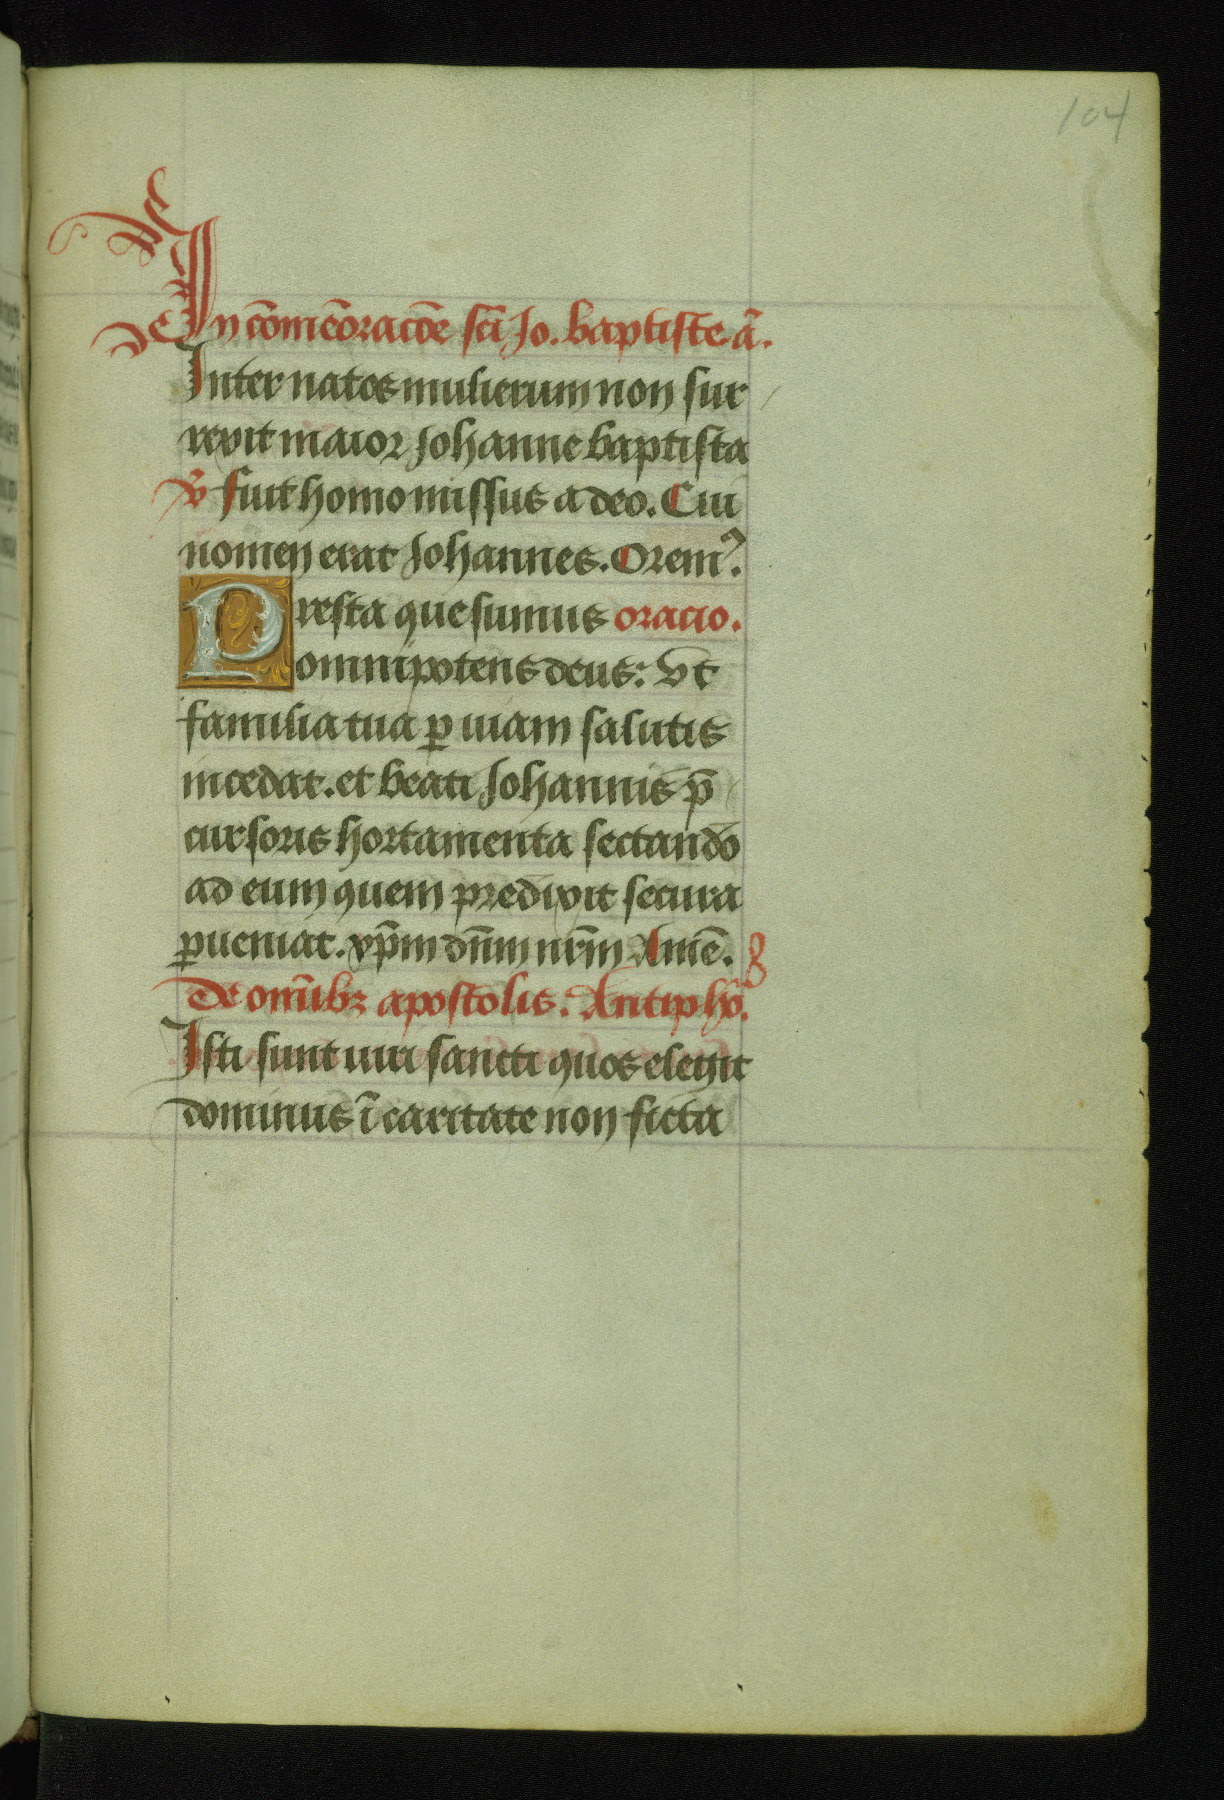 104
In cōmēoracōe sc̄i Jo. baptiste. ā.
Inter natos mulierum non sur
rexit maior Johanne baptista
v̄ fuit homo missus a deo. Cui
nomen erat Johannes. Orem⁹.
Presta quesumus oracio.
omnipotens deus: vt
familia tua ꝑ uiam salutis
incedat. et beati Johannis p̄
cursoris hortamenta sectando
ad eum quem predixit secura
ꝑueniat. xp̄m dn̄m nr̄m Amē.
De omībꝫ apostolis. Antiphō.
Isti sunt uiri sancti quos elegit
dominus ī caritate non ficta